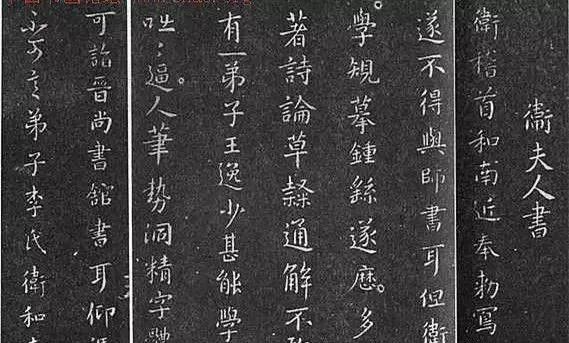 衛夫人書
衛稽首和南近奉勑寫
遂不得與師書耳但衛
學規摹鍾繇遂歷多
著詩論草隸通解不
有一弟子王逸少甚能學
咄咄逼人筆勢洞精字體
可詣晉尚書館書耳仰
弟子李氏衛和